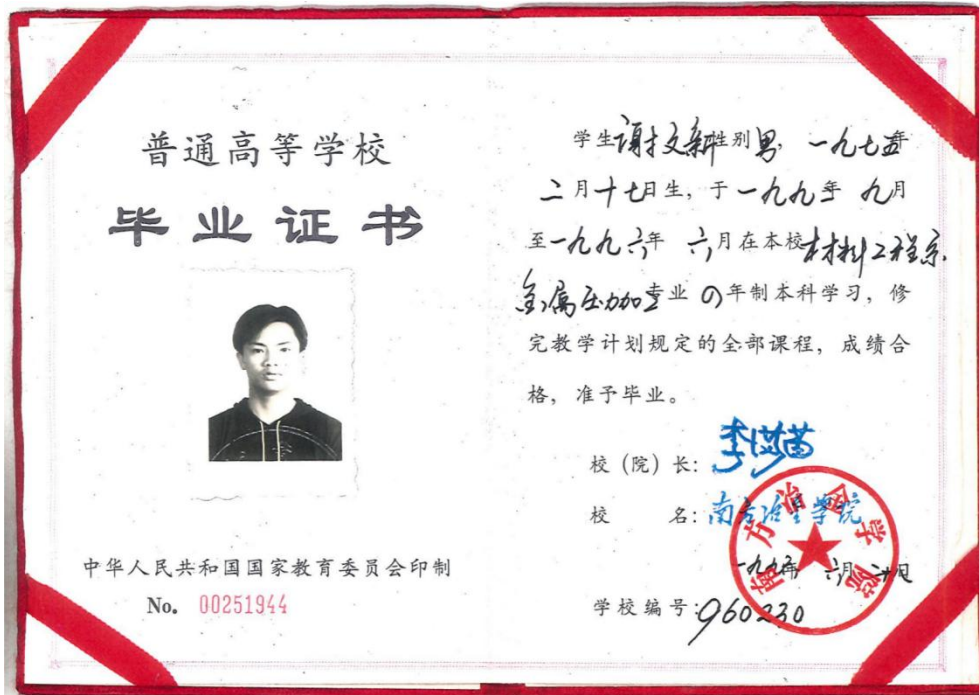 普通高等学校
毕业证书
中华人民共和国国家教育委员会印制
No. 00251944
学生谢文新性别男，一九七五年
二月十七日生，于一九九二年 九月
至一九九六年 六月在本校材料工程系
金属压力加工专业 四年制本科学习，修
完教学计划规定的全部课程，成绩合
格，准予毕业。
校（院）长：
校 名：南方冶金学院
南方冶金学院
一九九六年 六月 二十日
学校编号：960230